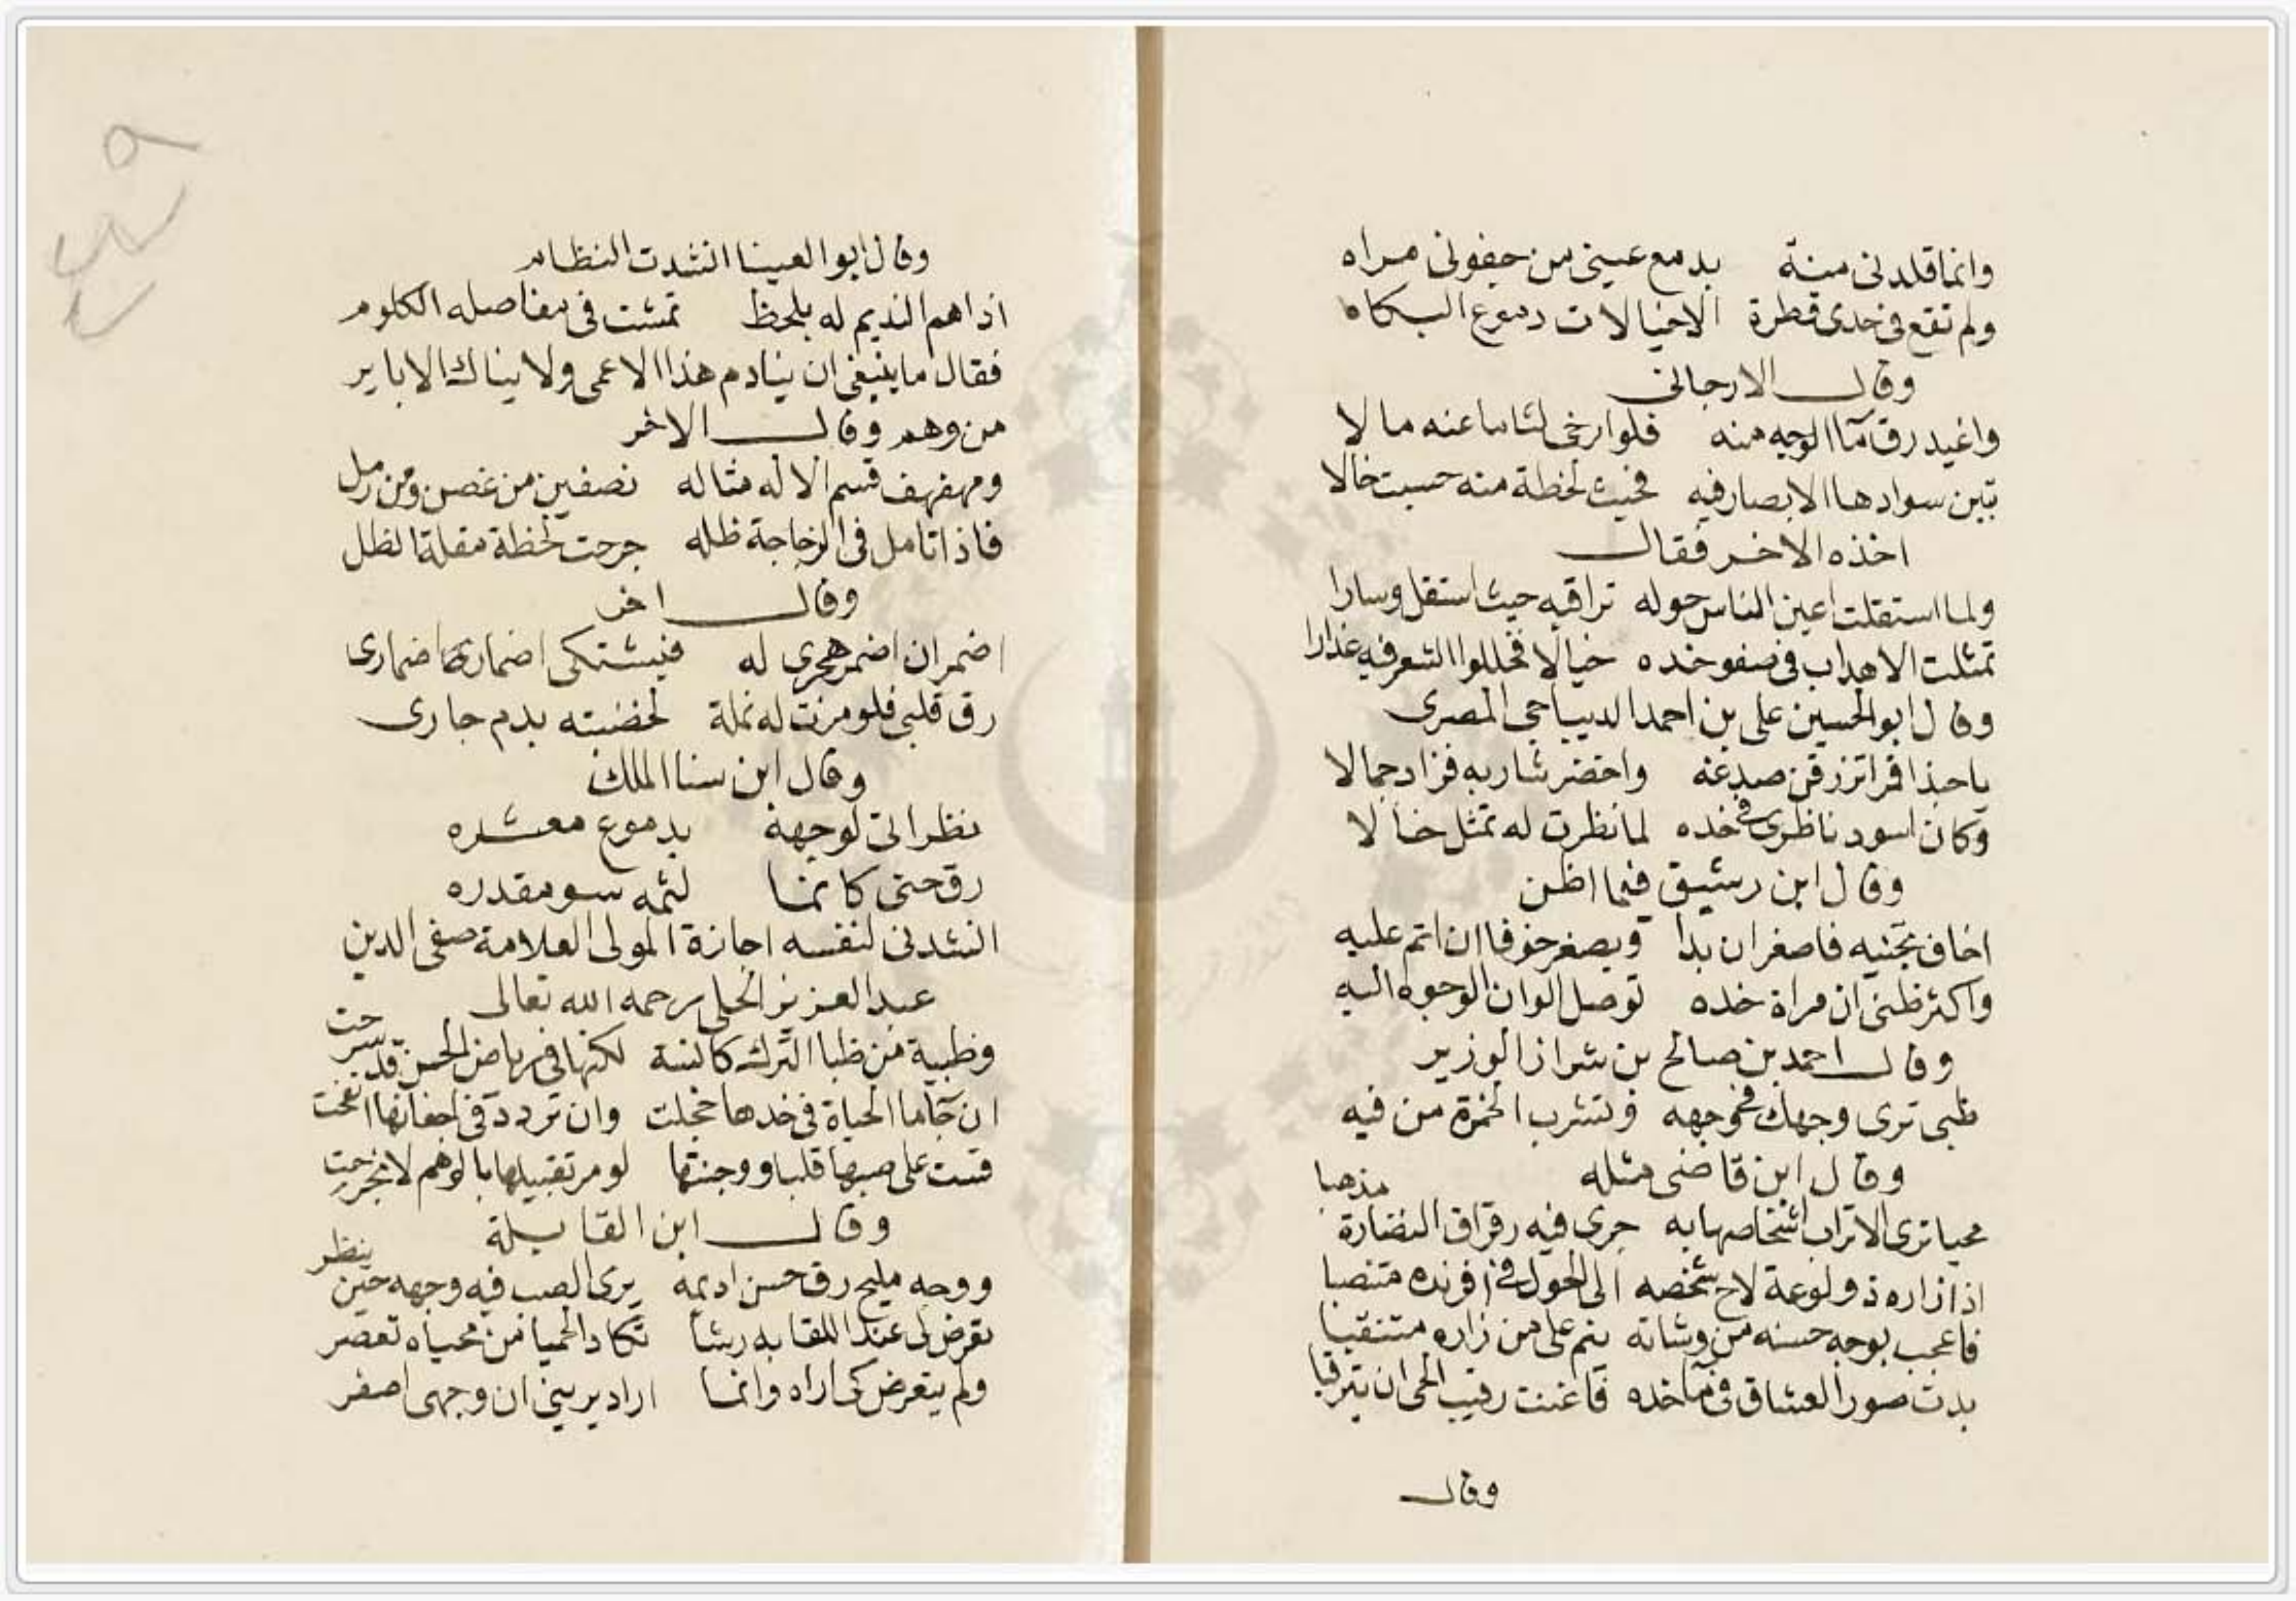 وانما قلدنى منية بدمع عينى من جفونى مراه
ولم تقع فى خدى قطرة الا خيالات دموع البكاه
وقال الارجانى
واغيد رق مآ الوجه منه فلو ارخى لثاما عنه مالا
تبين سوادها الابصار فيه فحيث لحظة منه حسبت خالا
اخذه الاخر فقال
ولما استقلت اعين الناس حوله تراقبه حيث استقل وسارا
تمثلت الاهداب فى صفو خده خيالًا فخالوا الشعر فيه عذارا
وقال ابو الحسين على بن احمد الديباجى المصرى
يا حبذا قمرا تزرفن صدغه واخضر شاربه فزاد جمالا
وكان اسود ناظرى فى خده لما نظرت له تمثل خالا
وقال ابن رشيق فيما اظن
اخاف تجنيه فاصغر ان بدا ويصغر خوفا ان اتم عليه
واكثر ظنى ان مراة خده توصل الوان الوجوه اليه
وقال احمد بن صالح بن شراز الوزير
ظبى ترى وجهك فى وجهه وتشرب الخمرة من فيه
وقال ابن قاضى مثله
محيا ترى الاتراب اشخاصها به جرى فيه رقراق النضارة مذهبا
اذا زاره ذو لوعة لاح شخصه الى الحول فى افرنده متنصبا
فاعجب بوجه حسنه من وشاته ينم على من زاره متنقبا
بدت صور العشاق فى مآ خده فاغنت رقيب الحى ان يترقبا
وقال
وقال ابو العينا انشدت النظام
اذا هم النديم له بلحظ تمشت فى مفاصله الكلوم
فقال ما ينبغى ان ينادم هذا الا عمى ولا يناك الا باير
من وهم وقال الاخر
ومهفهف قسم الاله مثاله نصفين من غصن ومن رمل
فاذا تامل فى الزجاجة ظله جرحت لحظة مقلة الظل
وقال اخر
اضمر ان اضمر هجرى له فيشتكى اضمارى اضمارى
رق قلبى فلو مرت له نملة لخضبته بدم جارى
وقال ابن سنا الملك
نظرا الى لوجهه بدموع معشره
رق حتى كانما لثمه سو مقدره
انشدنى لنفسه اجازة المولى العلامة صفى الدين
عبد العزيز الحلى رحمه الله تعالى
وظبية من ظبا الترك كانسة لكنها فى رياض الحسن قد سرحت
ان جآ ما الحياة فى خدها خجلت وان تردد فى اجفانها اتقحت
قست على صبها قلبا ووجنتها لو مر تقبيلها بالوهم لانجرحت
وقال ابن القابلة
ووجه مليح رق حسن اديمه يرى الصب فيه وجهه حين ينظر
تعرض لى عند اللقا به رشأ تكاد الحميا من محياه تعصر
ولم يتعرض كى اراه وانما اراد يرينى ان وجهى اصفر